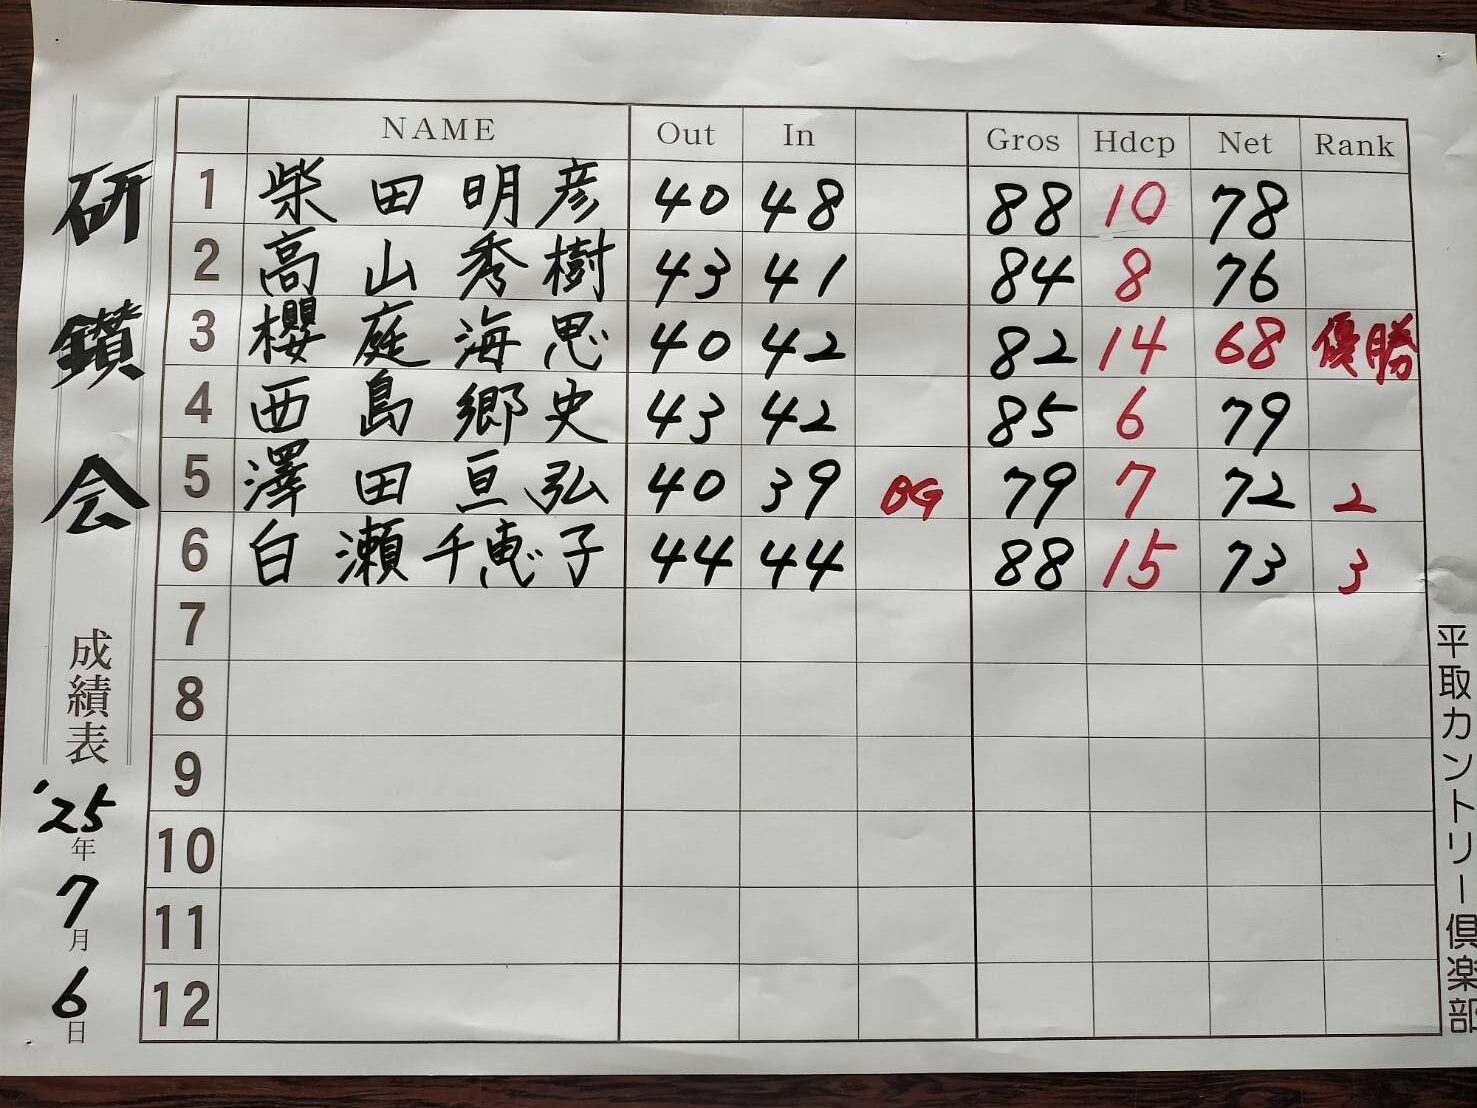 研鑽会
成績表
'25年
7月
6日
NAME Out In Gros Hdcp Net Rank
1 柴田明彦 40 48 88 10 78
2 高山秀樹 43 41 84 8 76
3 櫻庭海思 40 42 82 14 68 優勝
4 西島郷史 43 42 85 6 79
5 澤田亘弘 40 39 BG 79 7 72 2
6 白瀬千恵子 44 44 88 15 73 3
7
8
9
10
11
12
平取カントリー倶楽部